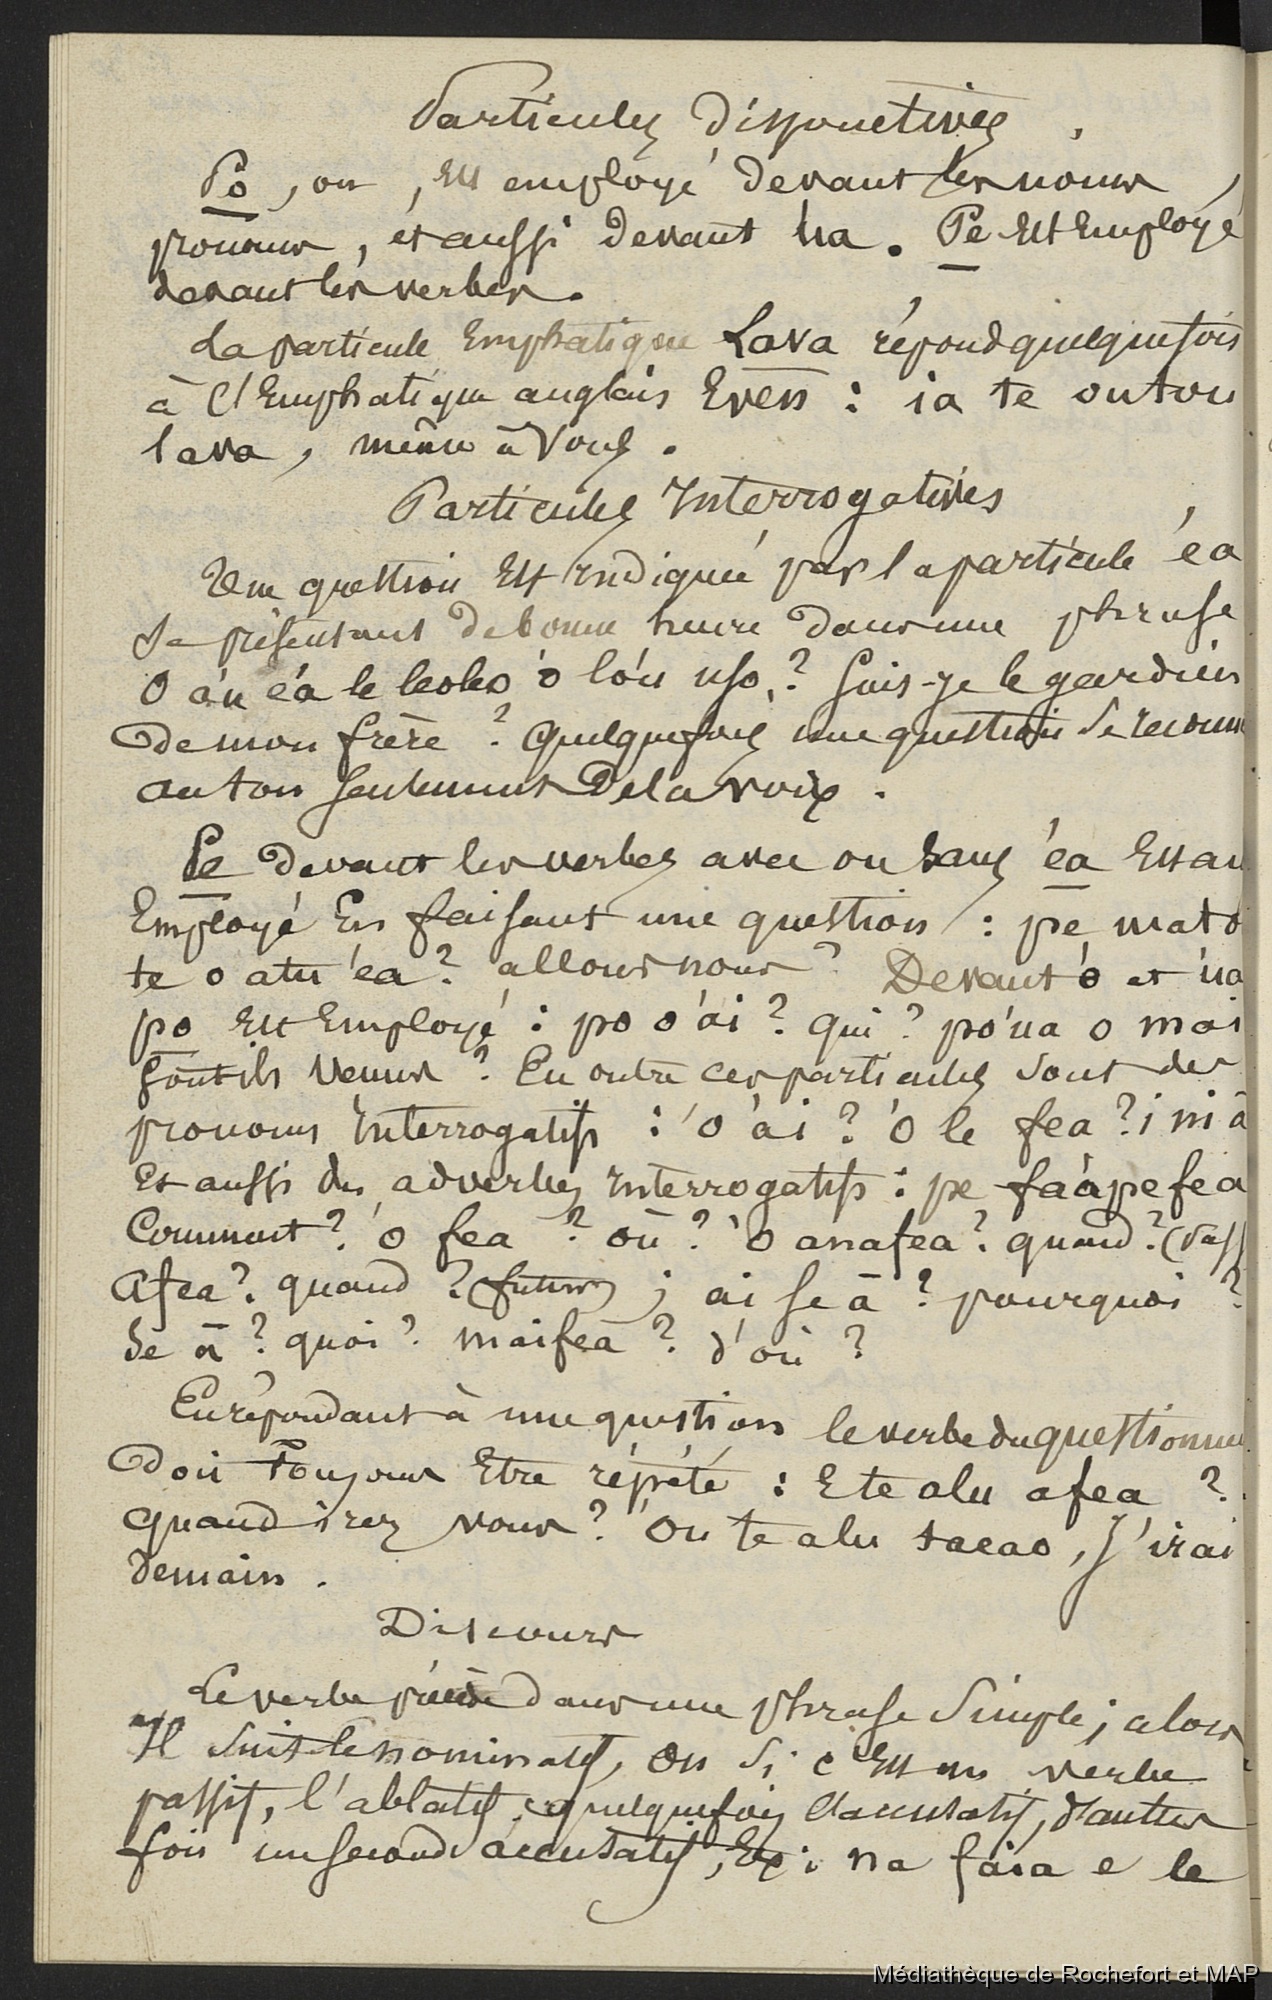 Particules Disjonctives
Po, ou, est employé devant les noms,
pronoms, et aussi devant ua. Pe est employé
devant les verbes.
La particule Emphatique Lava répond quelquefois
à l'Emphatique anglais Even : ia te outou
lava, même à Vous.
Particules Interrogatives
Une question est Indiquée par la particule éa
se présentant de bonne heure dans une phrase
O áu éa le leoleo ó lóu uso,? suis-je le gardien
de mon frère ? quelquefois une question se reconn
au ton seulement de la voix.
Pe devant les verbes avec ou sans éa est au
Employé En faisant une question : pe mato
te o atu éa ? allons nous ? Devant ó et úa
po est Employé : po o ái ? qui ? po úa o mai
sont ils venus ? En outre ces particules sont des
pronoms Interrogatifs : ó ái ? ó le fea ? i ni ā
Et aussi des adverbes Interrogatifs : pe faápefea
Comment ? ó fea ? où ? ó anafea ? quand ? (pass
Afea ? quand ? (futur) ; ai se ā ? pourquoi ?
Se ā ? quoi ? maifea ? d'où ?
En répondant à une question le verbe du questionneu
Doit Toujours Etre répété : E te alu afea ?
Quand irez vous ? Ou te alu taeao, J'irai
demain.
Discours
Le verbe précède dans une phrase Simple ; alors
Il suit le nominatif, ou si c'Est un verbe
passif, l'ablatif ; quelquefois l'accusatif, d'autres
fois un second accusatif, Ex : na faia e le
Médiathèque de Rochefort et MAP